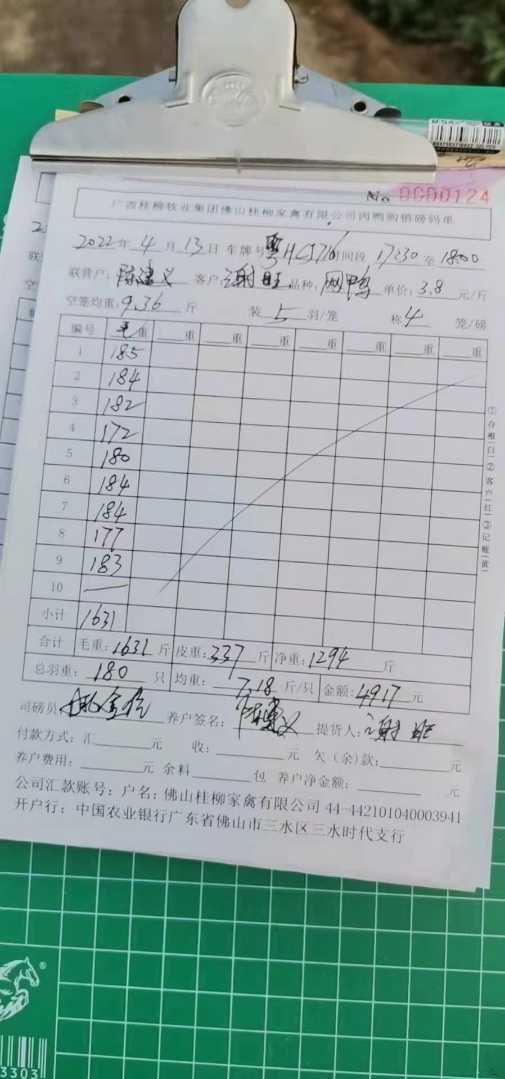 No 0000124
广西桂柳牧业集团佛山桂柳家禽有限公司肉鸭购销磅码单
2022年4月13日 车牌号 粤HCJ76 时间段 17:30 至 18:00
联营户: 陈建义 客户: 谢旺 品种: 网鸭 单价: 3.8 元/斤
空笼均重: 9.36 斤 装 5 羽/笼 称 4 笼/磅
编号 毛重 重 重 重 重 重 重 重
1 185
2 184
3 182
4 172
5 180
6 184
7 184
8 177
9 183
10 —
小计 1631
合计 毛重: 1631 斤 皮重: 337 斤 净重: 1294 斤
总羽重: 180 只 均重: 7.18 斤/只 金额: 4917 元
司磅员 养户签名: 陈建义 提货人: 谢旺
付款方式: 汇 元 收: 元 欠(余)款: 元
养户费用: 元 余料 包 养户净金额: 元
公司汇款账号: 户名: 佛山桂柳家禽有限公司 44-442101040003941
开户行: 中国农业银行广东省佛山市三水区三水时代支行
①存根(白)②客户(红)③记账(黄)
3303